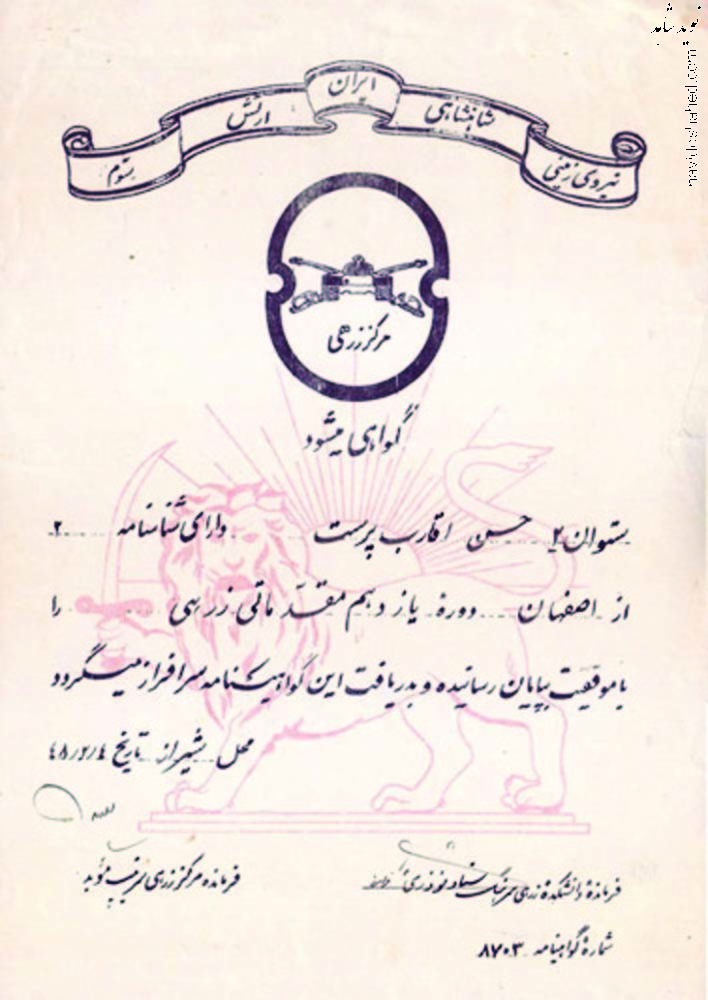 نوید شاهد
navideshahed.com
ایران
ارتش شاهنشاهی
نیروی زمینی
مرکز زرهی
گواهی میشود
ستوان ۲ حسن اقارب پرست دارای شناسنامه ۲
از اصفهان دوره یازدهم مقدماتی زرهی را
با موفقیت بپایان رسانیده و بدریافت این گواهینامه سرافراز میگردد
محل شیراز تاریخ ۴۸/۲/۴
فرمانده دانشکده زرهی سرهنگ ستاد نوذری
فرمانده مرکز زرهی سرتیپ مؤید
شماره گواهینامه ۸۷۰۳